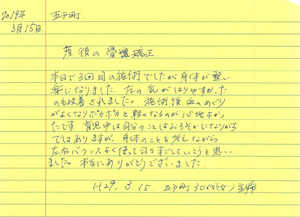 2019年
3月15日
五戸町
産後の骨盤矯正
本日で3回目の施術でしたが身体が整い
楽になりました。左の乳がはりやすかった
のも改善されました。施術後血のめぐり
がよくなりポカポカと軽くなるのが心地よかっ
たです。育児中は自分のことはおろそかになりがち
ではありますが、身体のことも考えながら
左右バランスよく使って日々すごしていこうと思い
ました。本当にありがとうございました。
H29.3.15. 五戸町 30代(女)主婦